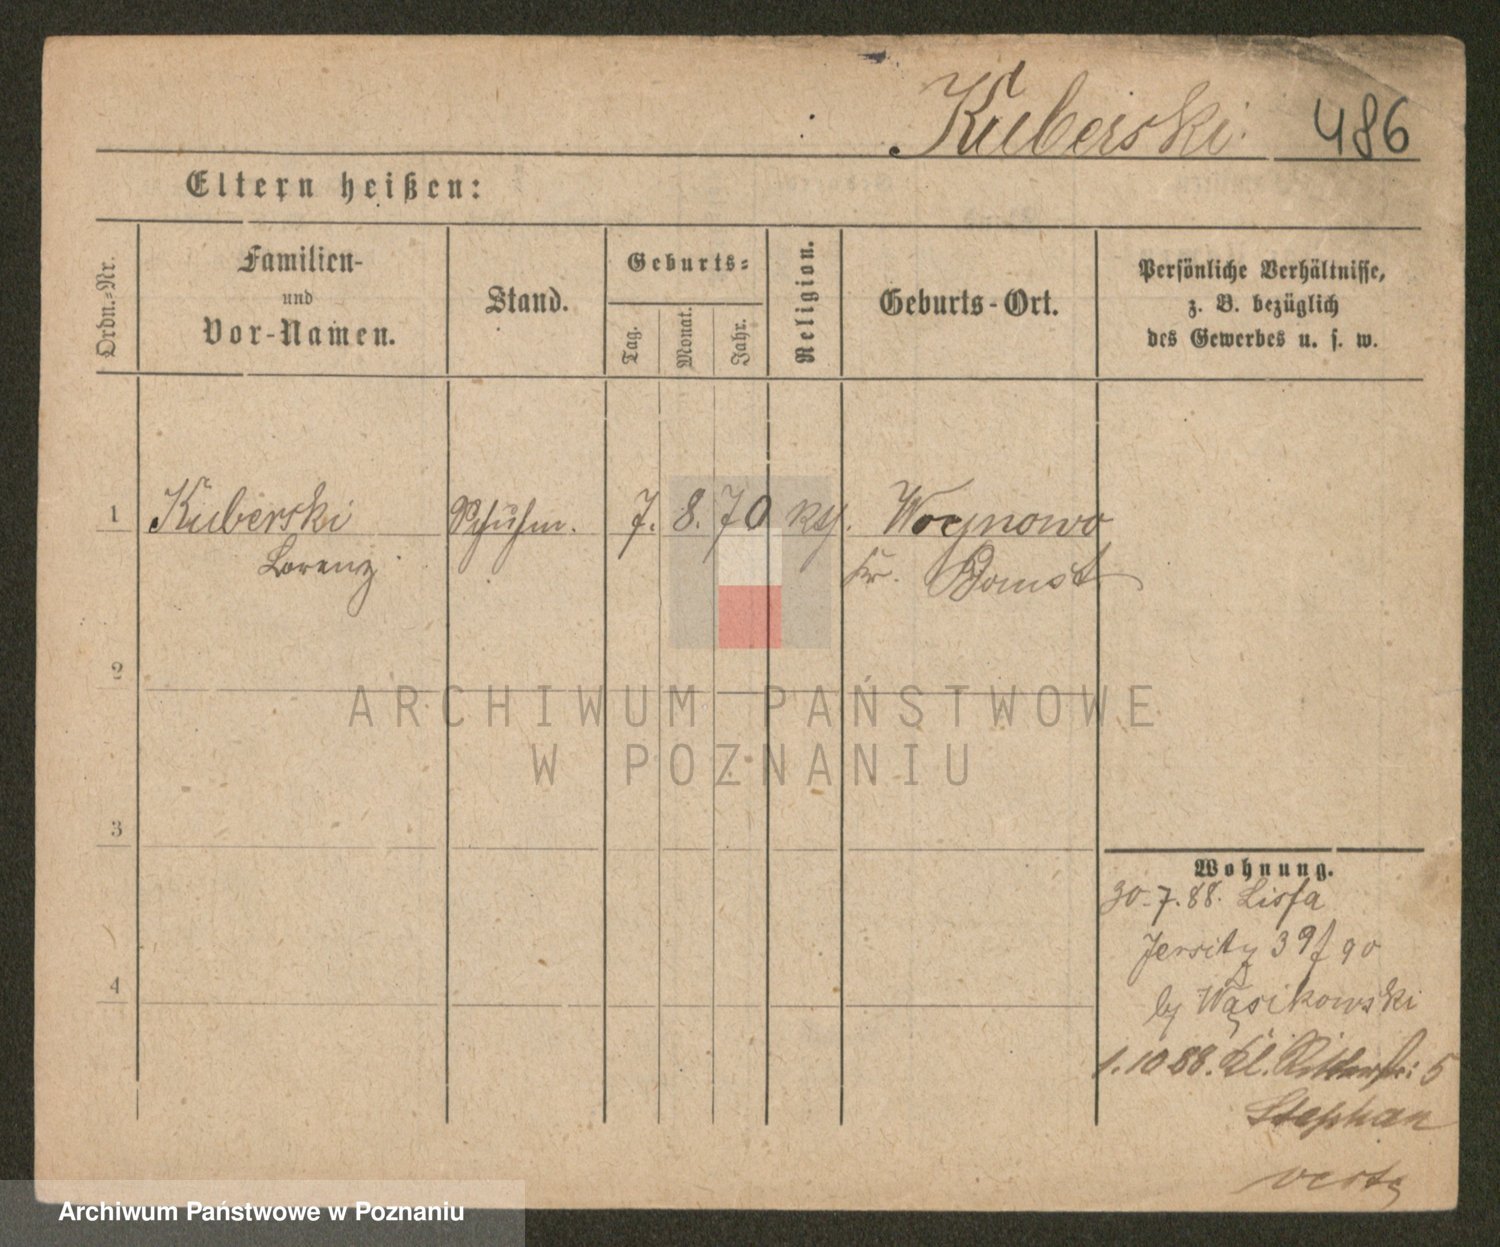 Kuberski 486
Eltern heißen:
Ordn.-Nr.
Familien-
und
Vor-Namen.
Stand.
Geburts-
Tag.
Monat.
Jahr.
Religion.
Geburts-Ort.
Persönliche Verhältnisse,
z. B. bezüglich
des Gewerbes u. s. w.
1 Kuberski Schuhm. 7. 8. 70 kth. Woynowo
Lorenz Kr. Bomst
2
ARCHIWUM PAŃSTWOWE
W POZNANIU
3
Wohnung.
30.7.88. Lissa
Jersitz 39
4
by Wąsikowski
1.10 88. Kl. Ritterstr: 5
Stephan
verte
Archiwum Państwowe w Poznaniu